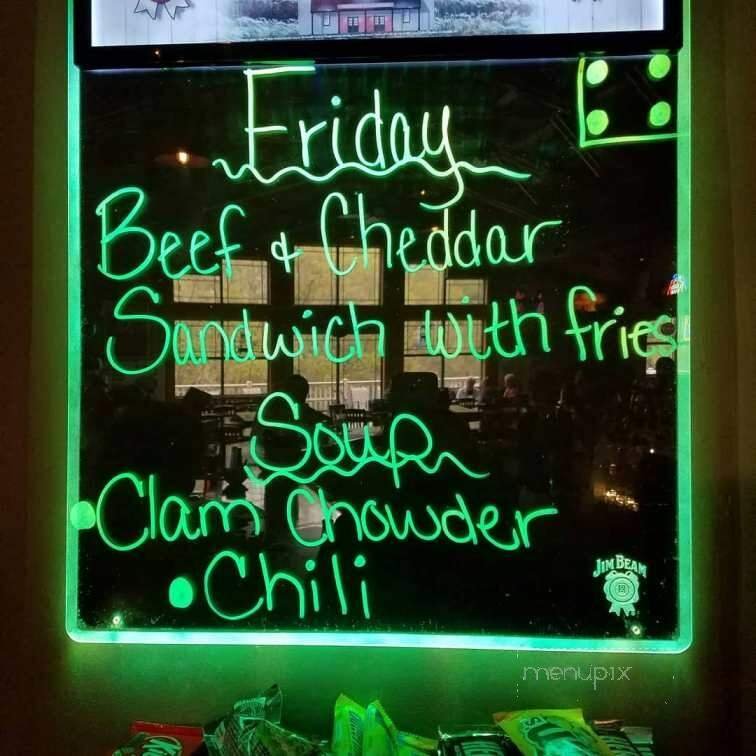 Friday
Beef & Cheddar
Sandwich with fries
Soup
Clam Chowder
Chili
JIM BEAM
menupix